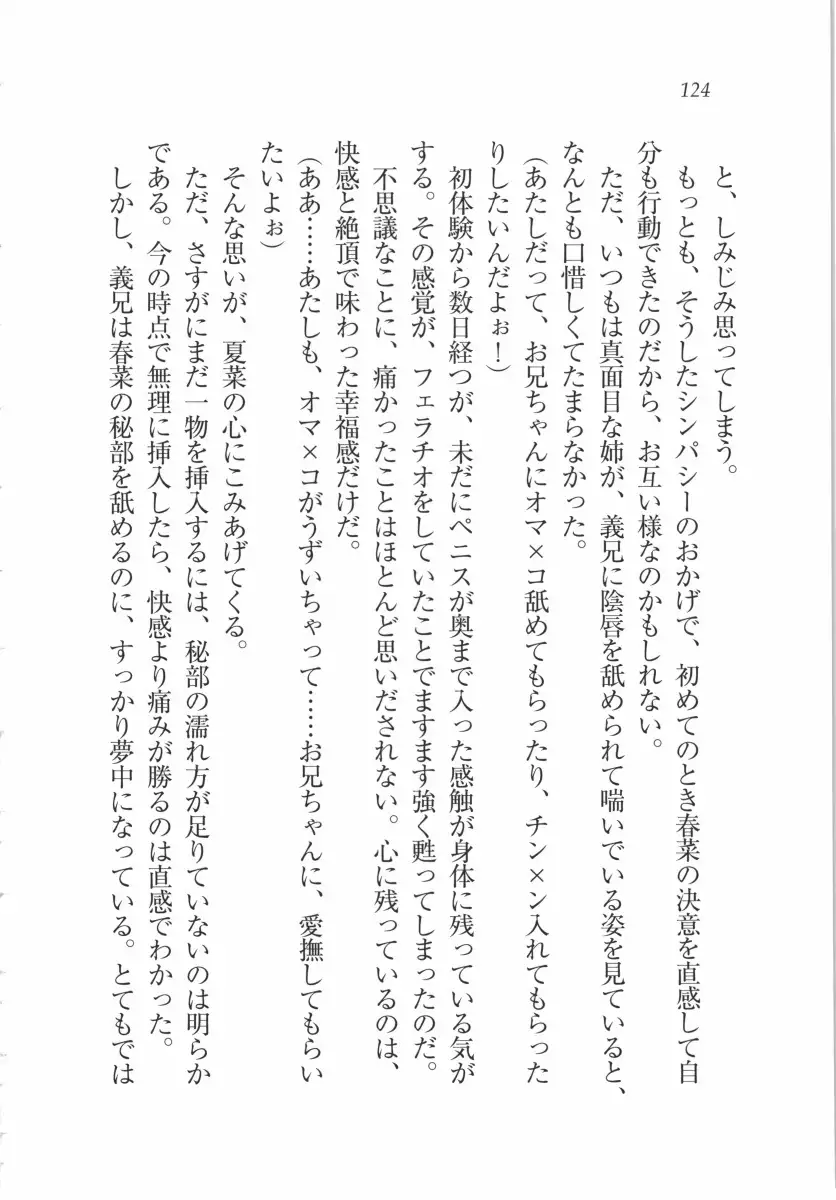 124
と、しみじみ思ってしまう。
もっとも、そうしたシンパシーのおかげで、初めてのとき春菜の決意を直感して自
分も行動できたのだから、お互い様なのかもしれない。
ただ、いつもは真面目な姉が、義兄に陰唇を舐められて喘いでいる姿を見ていると、
なんとも口惜しくてたまらなかった。
（あたしだって、お兄ちゃんにオマ×コ舐めてもらったり、チン×ン入れてもらった
りしたいんだよぉ！）
初体験から数日経つが、未だにペニスが奥まで入った感触が身体に残っている気が
する。その感覚が、フェラチオをしていたことでますます強く甦ってしまったのだ。
不思議なことに、痛かったことはほとんど思いだされない。心に残っているのは、
快感と絶頂で味わった幸福感だけだ。
（ああ……あたしも、オマ×コがうずいちゃって……お兄ちゃんに、愛撫してもらい
たいよぉ）
そんな思いが、夏菜の心にこみあげてくる。
ただ、さすがにまだ一物を挿入するには、秘部の濡れ方が足りていないのは明らか
である。今の時点で無理に挿入したら、快感より痛みが勝るのは直感でわかった。
しかし、義兄は春菜の秘部を舐めるのに、すっかり夢中になっている。とてもでは